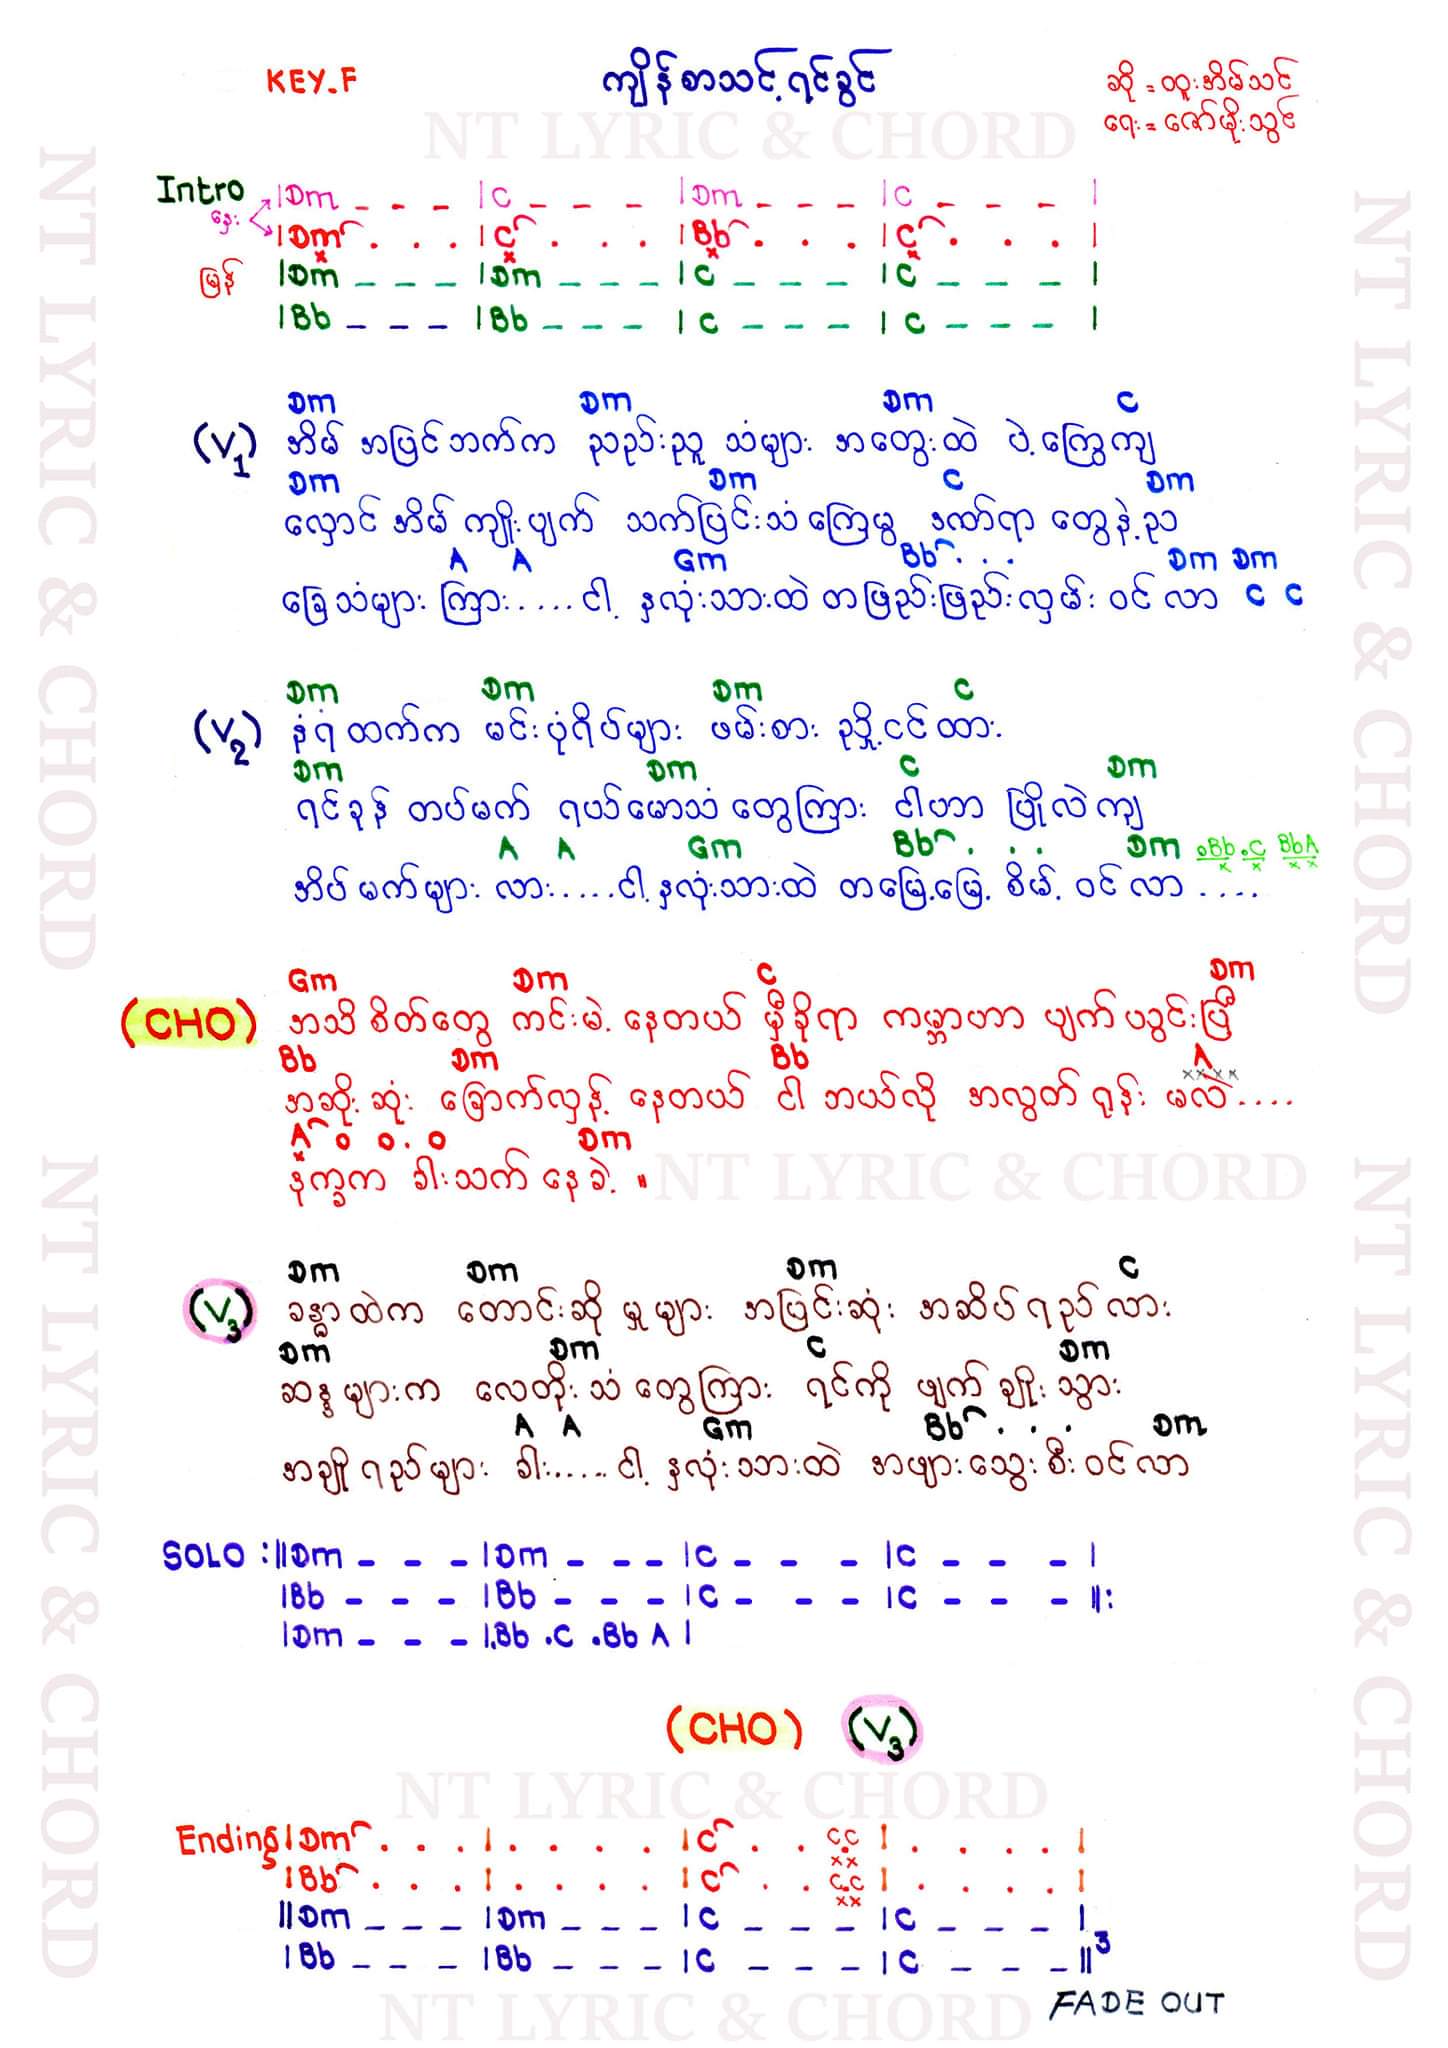 KEY-F
ကျိန်စာသင့်ရင်ခွင်
ဆို = ထူးအိမ်သင်
ရေး = ဇော်မိုးသွင်
NT LYRIC & CHORD
Intro |Dm _ _ _ |C _ _ _ |Dm _ _ _ |C _ _ _ |
နှေး |Dm . . . |C . . . |Bb . . . |C . . . |
မြန် |Dm _ _ _ |Dm _ _ _ |C _ _ _ |C _ _ _ |
|Bb _ _ _ |Bb _ _ _ |C _ _ _ |C _ _ _ |
Dm Dm Dm C
(V1) အိမ် အပြင်ဘက်က ညည်းညူ သံများ အတွေးထဲ ပဲ့ကြွေကျ
Dm Dm C Dm
လှောင်အိမ် ကျိုးပျက် သက်ပြင်းသံ ကြေမွ ဒဏ်ရာ တွေနဲ့ည
A A Gm Bb . . . Dm Dm
ခြေသံများ ကြား..... ငါ့ နှလုံးသားထဲ တဖြည်းဖြည်းလှမ်း ဝင် လာ C C
Dm Dm Dm C
(V2) နံရံထက်က မင်းပုံရိပ်များ ဖမ်းစား ညှို့ငင်ထား
Dm Dm C Dm
ရင်ခုန် တပ်မက် ရယ်မောသံ တွေကြား ငါဟာ ပြိုလဲကျ
A A Gm Bb . . . Dm .Bb .C BbA
အိပ်မက်များ လား.....ငါ့နှလုံးသားထဲ တမြေ့မြေ့ စိမ့် ဝင် လာ ....
Gm Dm C Dm
(CHO) အသိစိတ်တွေ ကင်းမဲ့ နေတယ် မှီခိုရာ ကမ္ဘာဟာ ပျက်ယွင်းပြီ
Bb Dm Bb A
အဆိုးဆုံး ခြောက်လှန့် နေတယ် ငါ ဘယ်လို အလွတ် ရုန်း မလဲ....
A o o . o Dm
နံက္ခက ခါးသက် နေခဲ့ ။
NT LYRIC & CHORD
Dm Dm Dm C
(V3) ခန္ဓာထဲက တောင်းဆိုမှုများ အပြင်းဆုံး အဆိပ်ရည်လား
Dm Dm C Dm
ဆန္ဒများက လေတိုးသံ တွေကြား ရင်ကို ဖျက်ချိုးသွား
A A Gm Bb . . . Dm
အချိုရည်များ ခါး..... ငါ့ နှလုံးသားထဲ အဖျားသွေး စီးဝင်လာ
SOLO :||Dm - - - |Dm - - - |C - - - |C - - - |
|Bb - - - |Bb - - - |C - - - |C - - - ||:
|Dm - - - |.Bb .C .Bb A |
(CHO) (V3)
NT LYRIC & CHORD
Ending |Dm . . . | . . . . |C . . C.C | . . . . |
|Bb . . . | . . . . |C . . C.C | . . . . |
||Dm _ _ _ |Dm _ _ _ |C _ _ _ |C _ _ _ |
|Bb _ _ _ |Bb _ _ _ |C _ _ _ |C _ _ _ || 3
FADE OUT
NT LYRIC & CHORD
NT LYRIC & CHORD
NT LYRIC & CHORD
NT LYRIC & CHORD
NT LYRIC & CHORD